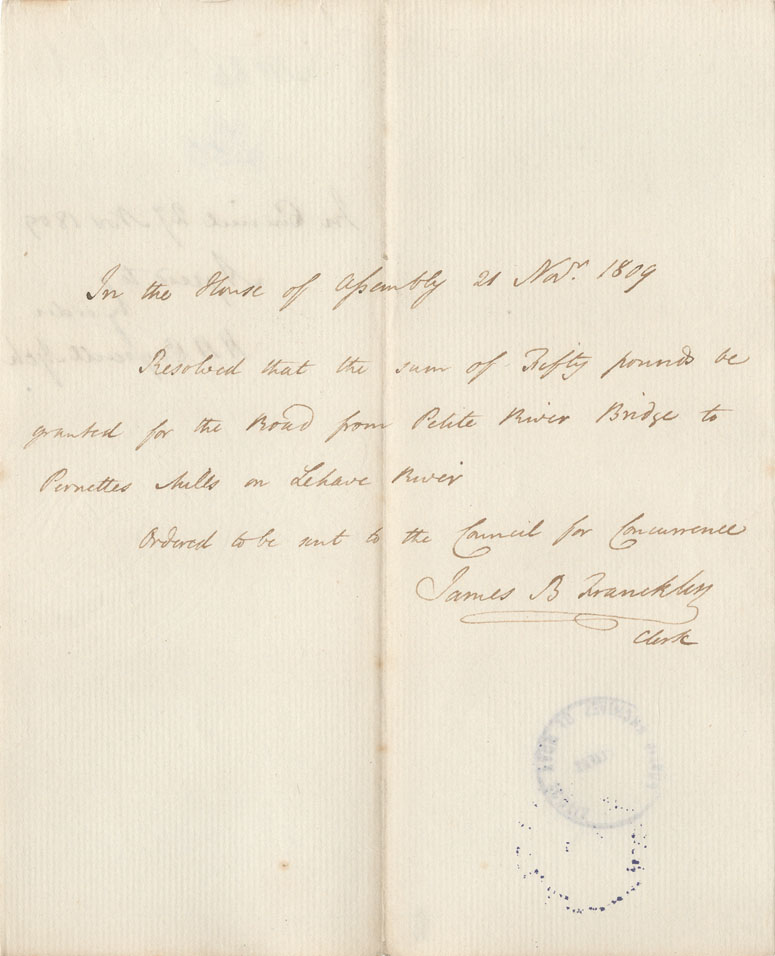 In the House of Assembly 21 Novr. 1809
Resolved that the sum of Fifty pounds be
granted for the Road from Petite River Bridge to
Pernettes Mills on Lehave River
Ordered to be sent to the Council for Concurrence
James B Francklin
Clerk
In Council 27 Nov 1809